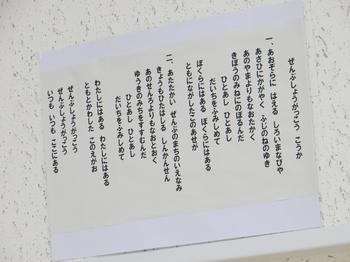 ぜんぶしょうがっこう こうか
一、あおぞらに はえる しろいまなびや
あさひにかがやく ふじのねのゆき
あのやまよりもなおたかく
きぼうのみねにのぼるんだ
ひとあし ひとあし
だいちをふみしめて
ぼくらにはある ぼくらにはある
ともにながしたこのあせが
二、あたたかい ぜんぶのまちのいえなみ
きょうもひたはしる しんかんせん
あのせんろよりもなおとおく
ゆうきのみちをすすむんだ
ひとあし ひとあし
だいちをふみしめて
わたしにはある わたしにはある
ともとかわした このえがお
ぜんぶしょうがっこう
ぜんぶしょうがっこう
いつも いつも ここにある